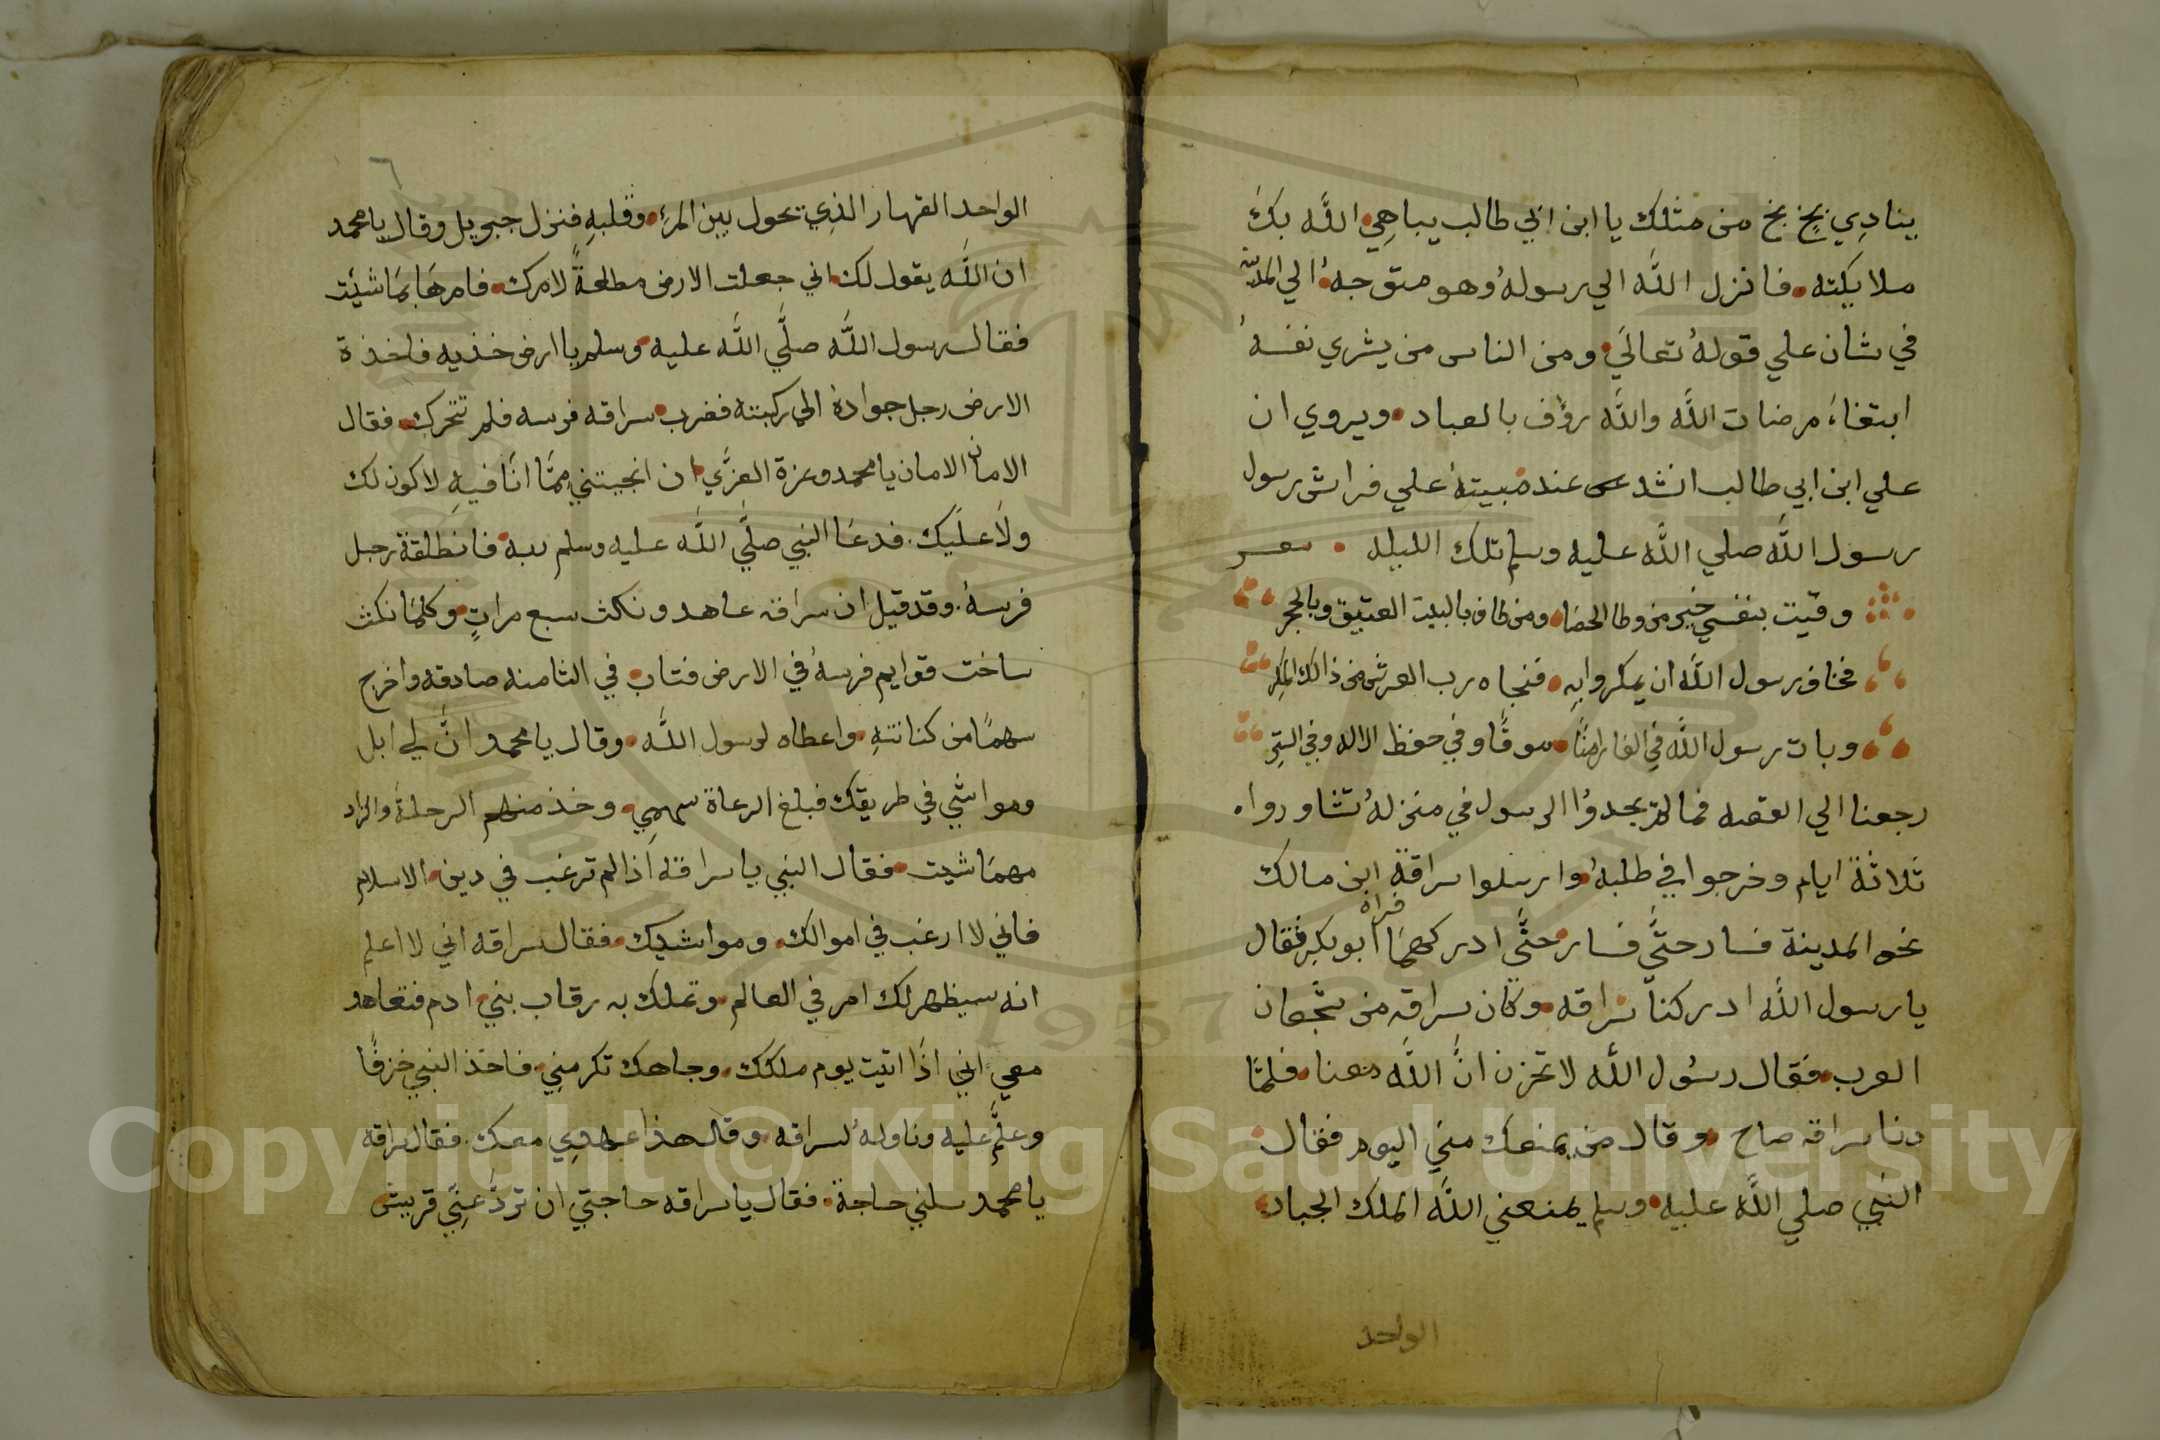 ينادي بخ بخ من مثلك يا ابن ابي طالب يباهي الله بك
ملايكته فانزل الله الي رسوله وهو متوجه الي المدينة
في شان علي قوله تعالى ومن الناس من يشري نفسه
ابتغاء مرضات الله والله رؤف بالعباد ويروي ان
علي ابن ابي طالب انشد عند مبيته علي فراش رسول
رسول الله صلي الله عليه وسلم تلك الليله شعر
وقيت بنفسي خير من وطا الحصا ومن طاف بالبيت العتيق وبالحجر
فخاف رسول الله ان يمكروا به فنجاه رب العرش من ذالك المكر
وبات رسول الله في الغار امنا موقا وفي حفظ الاله وفي الستر
رجعنا الي القصه فما لم يجدوا الرسول في منزله تشاورواه
ثلاثة ايام وخرجوا في طلبه وارسلوا سراقة ابن مالك
نحو المدينة فسار حتى فسار حتى ادركهما فراه ابوبكر فقال
يا رسول الله ادركنا سراقه وكان سراقه من شجعان
العرب فقال رسول الله لا تحزن ان الله معنا فلما
دنا سراقه صاح وقال من يمنعك مني اليوم فقال
النبي صلي الله عليه وسلم يمنعني الله الملك الجبار
الواحد
٦
الواحد القهار الذي تحول بين المرء وقلبه فنزل جبريل وقال يا محمد
ان الله يقول لك اني جعلت الارض مطلحة لامرك فامرها بما شئت
فقال رسول الله صلى الله عليه وسلم يا ارض خذيه فاخذة
الارض رجل جواده الي ركبته فضرب سراقه فرسه فلم تتحرك فقال
الامان الامان يا محمد وعزة العزي ان انجيتني مما انا فيه لاكون لك
ولا عليك فدعا النبي صلى الله عليه وسلم ربه فانطلقة رجل
فرسه وقد قيل ان سراقه عاهد ونكث سبع مرات وكلما نكث
ساخت قوايم فرسه في الارض فتاب في الثامنه صادقه واخرج
سهما من كنانته واعطاه لرسول الله وقال يا محمد ان لي ابل
ومواشي في طريقك فبلغ الرعاة سهمي وخذ منهم الرحلة والزاد
مهما شيت فقال النبي يا سراقه اذا لم ترغب في دين الاسلام
فاني لا ارغب في اموالك ومواشيك فقال سراقه اني لا اعلم
انه سيظهر لك امر في العالم وتملك به رقاب بني ادم فتعاهد
معي اني اذا اتيت يوم ملكك وجاهك تكرمني فاخذ النبي خزفا
وعلم عليه وناوله لسراقه وقال هذا عهدي معك فقال سراقه
يا محمد سلني حاجة فقال يا سراقه حاجتي ان ترد عني قريش
Copyright © King Saud University
1957